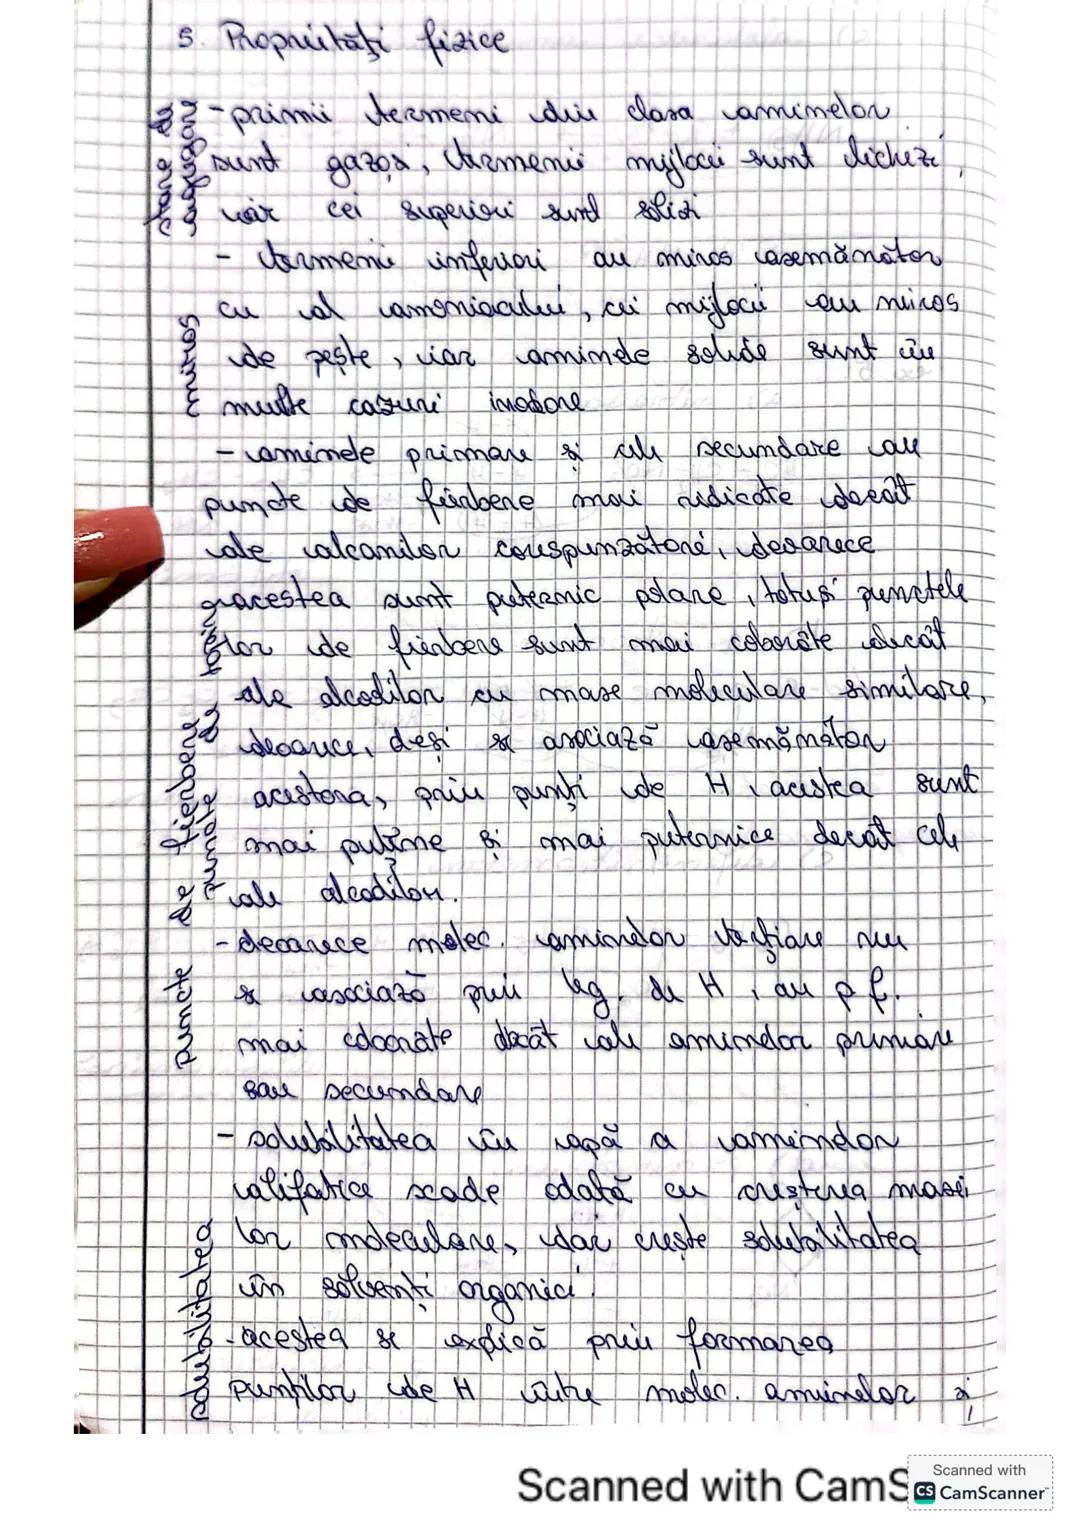 5. Proprietăți fizice
stare de agregare
- primii termeni din clasa aminelor
sunt gazoși, termenii mijlocii sunt lichizi,
iar cei superiori sunt solizi
miros
- termenii inferiori au miros asemănător
cu al amoniacului, cei mijlocii au miros
de pește, iar aminele solide sunt în
multe cazuri inodore
puncte de fierbere
puncte de topire
- aminele primare și cele secundare au
puncte de fierbere mai ridicate decât
ale alcanilor corespunzătoré, deoarece
acestea sunt puternic polare, totuși punctele
lor de fierbere sunt mai coborâte decât
ale alcoolilor cu mase moleculare similare,
deoarece, deși se asociază asemănător
acestora, prin punți de H, acestea sunt
mai puține și mai puternice decât cele
ale alcoolilor.
- deoarece molec. aminelor terțiare nu
se asociază prin leg. de H, au p.f.
mai coborâte decât ale aminelor primare
sau secundare
solubilitatea
- solubilitatea în apă a aminelor
alifatice scade odată cu creșterea masei
lor moleculare, dar crește solubilitatea
în solvenți organici.
- acestea se explică prin formarea
punților de H între molec. aminelor și
Scanned with CamS
Scanned with
CS CamScanner